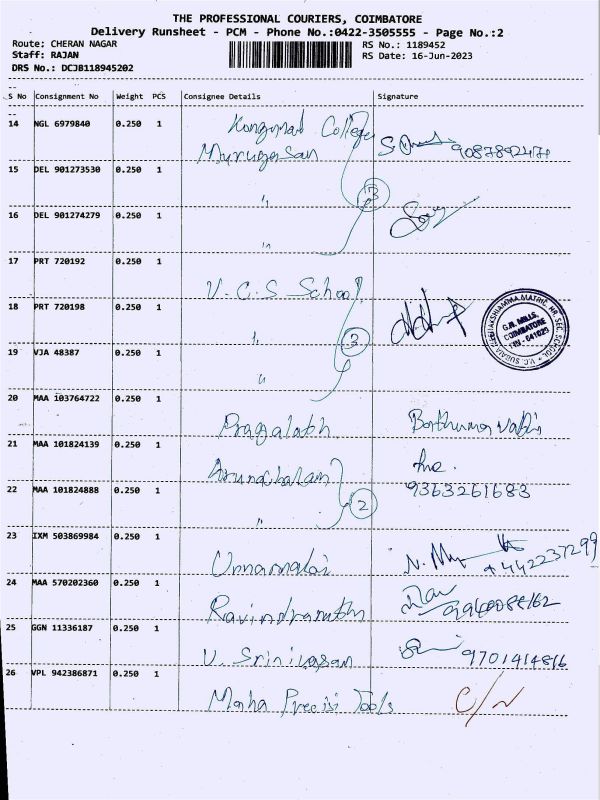 THE PROFESSIONAL COURIERS, COIMBATORE
Delivery Runsheet - PCM - Phone No.:0422-3505555 - Page No.:2
Route: CHERAN NAGAR RS No.: 1189452
Staff: RAJAN RS Date: 16-Jun-2023
DRS No.: DCJB118945202
S No Consignment No Weight PCS Consignee Details Signature
14 NGL 6979840 0.250 1 College
Murugesan 9087892471
15 DEL 901273530 0.250 1 "
3
16 DEL 901274279 0.250 1 "
17 PRT 720192 0.250 1 V.C.S School
18 PRT 720198 0.250 1 "
3
G.N. MILLS,
COIMBATORE
PIN - 641029
19 VJA 48387 0.250 1 "
20 MAA 103764722 0.250 1 Pragalabh
21 MAA 101824139 0.250 1 Arunachalam
22 MAA 101824888 0.250 1 " 9363261683
2
23 IXM 503869984 0.250 1 Unnamalai +442237299
24 MAA 570202360 0.250 1 Ravindranath
25 GGN 11336187 0.250 1 V. Srinivasan 9701414816
26 VPL 942386871 0.250 1 Maha Precisi Tools C/N